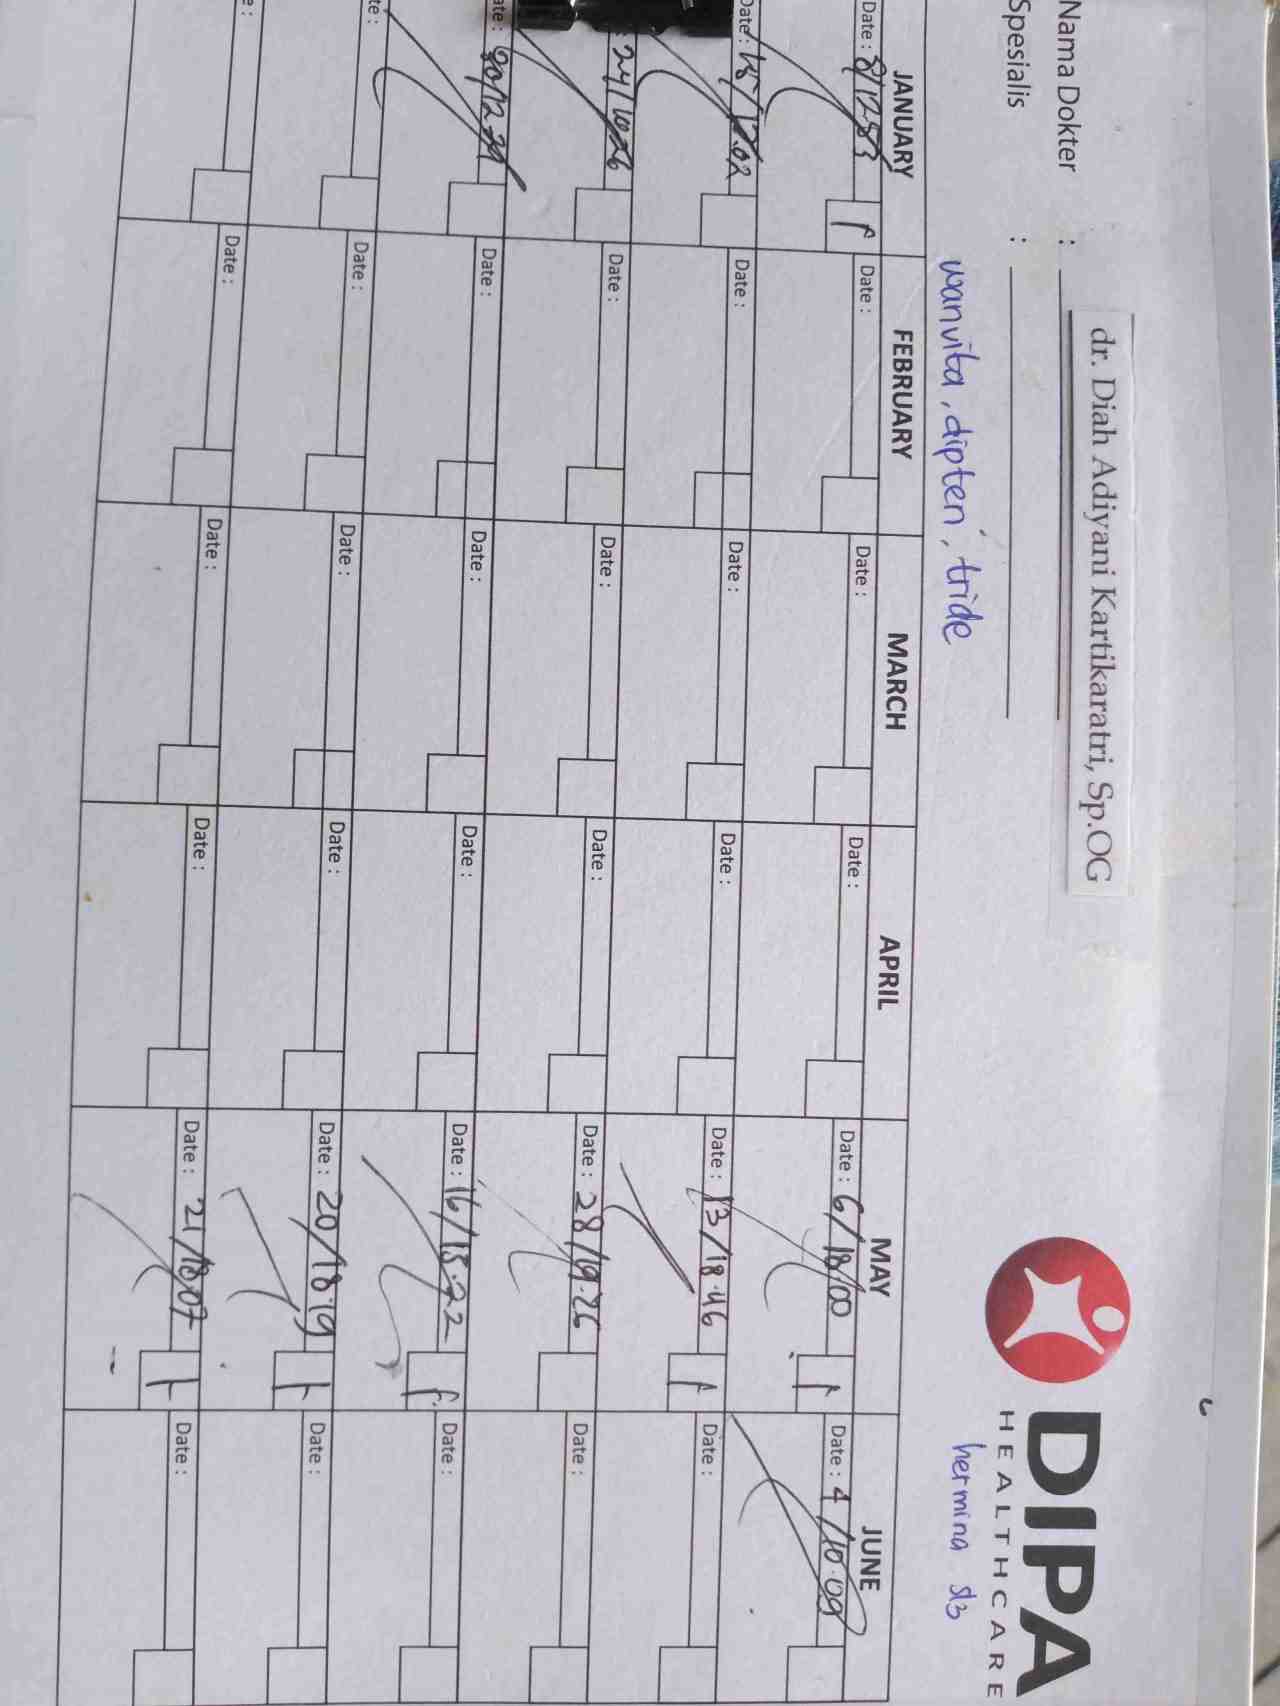 Nama Dokter : dr. Diah Adiyani Kartikaratri, Sp.OG
Spesialis :
DIPA
HEALTHCARE
wanvita, dipten, tride
hermina s13
JANUARY FEBRUARY MARCH APRIL MAY JUNE
Date : 8/12.53 Date : Date : Date : Date : 6/18.00 Date : 4/10.09
Date : 15/12.02 Date : Date : Date : Date : 13/18.46 Date :
24/10.26 Date : Date : Date : Date : 28/19.26 Date :
ate : 30/12.29 Date : Date : Date : Date : 16/18.22 Date :
te : Date : Date : Date : Date : 20/18.19 Date :
e : Date : Date : Date : Date : 21/18.07 Date :